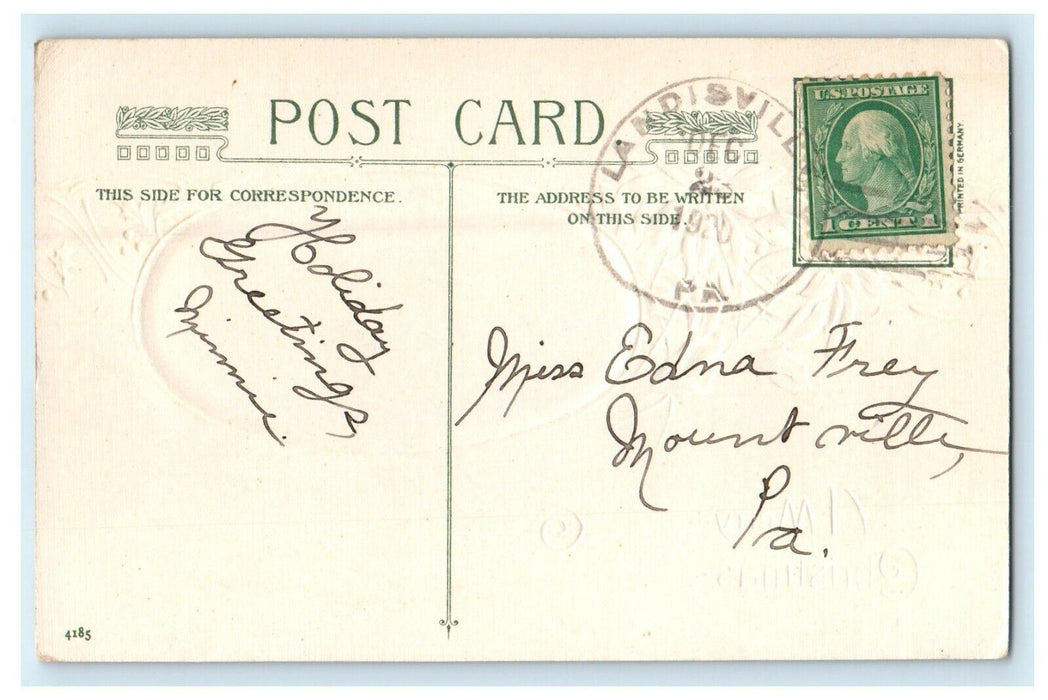 POST CARD
THIS SIDE FOR CORRESPONDENCE.
THE ADDRESS TO BE WRITTEN
ON THIS SIDE.
LANDISVILLE
DEC
1920
PA
U.S. POSTAGE
1 CENT 1
PRINTED IN GERMANY.
Holiday
Greetings,
Minnie.
Miss Edna Frey
Mountville,
Pa.
A Merry
Christmas
4185